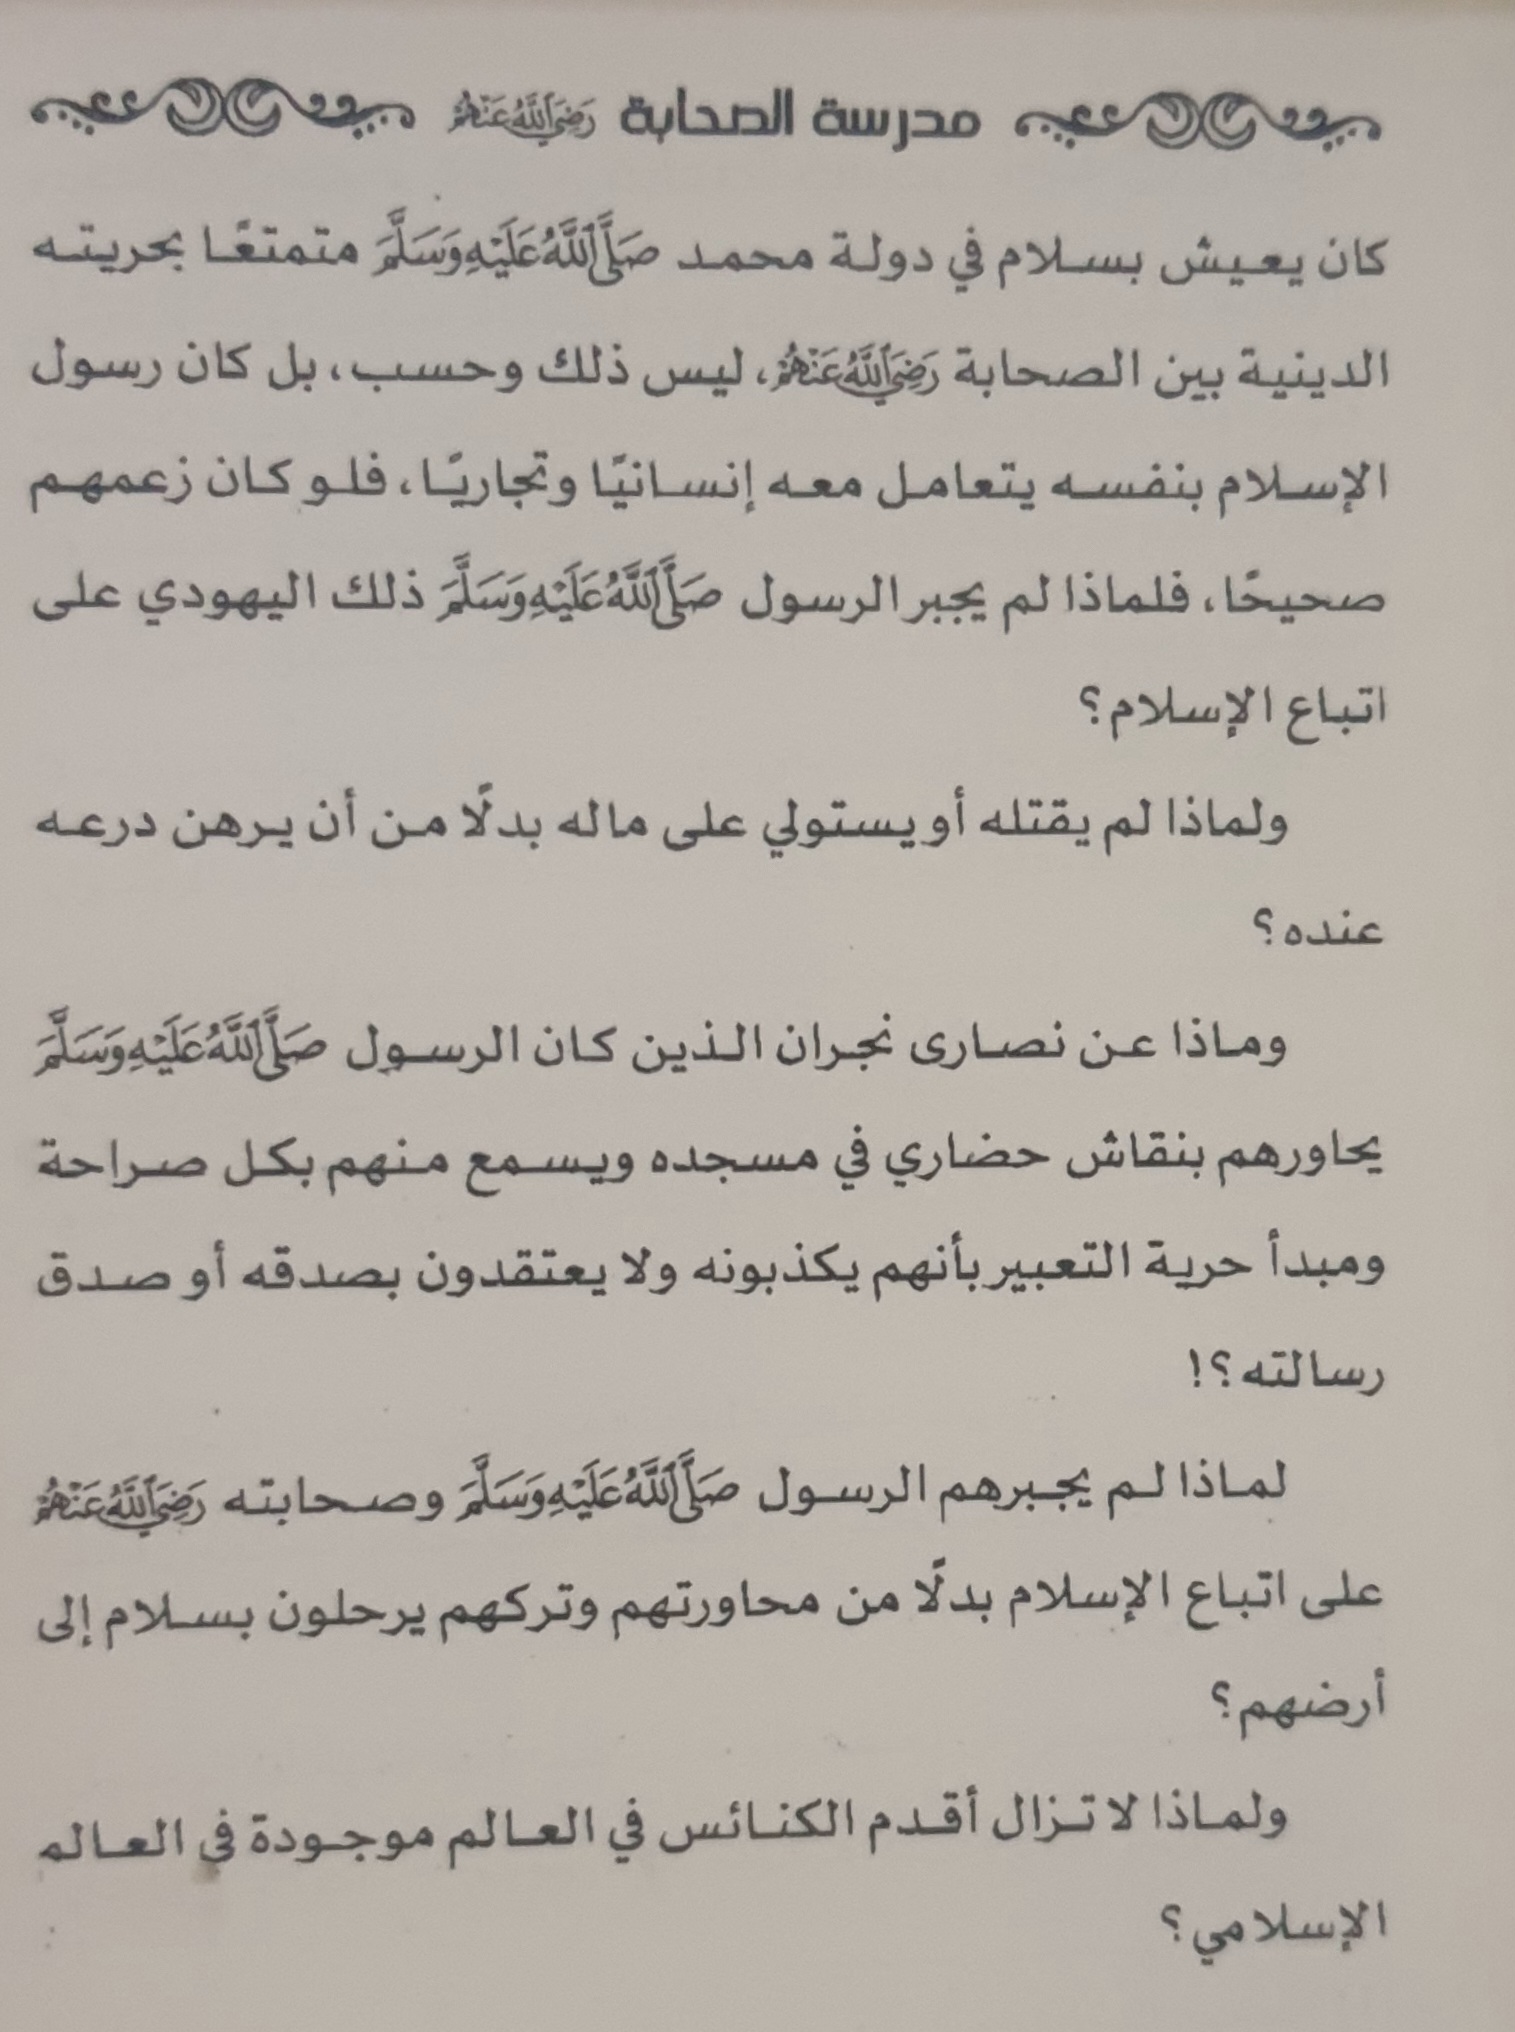 مدرسة الصحابة رَضِيَ اللَّهُ عَنْهُمْ
كان يعيش بسلام في دولة محمد صَلَّى اللَّهُ عَلَيْهِ وَسَلَّمَ متمتعًا بحريته
الدينية بين الصحابة رَضِيَ اللَّهُ عَنْهُمْ، ليس ذلك وحسب، بل كان رسول
الإسلام بنفسه يتعامل معه إنسانيًا وتجاريًا، فلو كان زعمهم
صحيحًا، فلماذا لم يجبر الرسول صَلَّى اللَّهُ عَلَيْهِ وَسَلَّمَ ذلك اليهودي على
اتباع الإسلام؟
ولماذا لم يقتله أو يستولي على ماله بدلًا من أن يرهن درعه
عنده؟
وماذا عن نصارى نجران الذين كان الرسول صَلَّى اللَّهُ عَلَيْهِ وَسَلَّمَ
يحاورهم بنقاش حضاري في مسجده ويسمع منهم بكل صراحة
ومبدأ حرية التعبير بأنهم يكذبونه ولا يعتقدون بصدقه أو صدق
رسالته؟!
لماذا لم يجبرهم الرسول صَلَّى اللَّهُ عَلَيْهِ وَسَلَّمَ وصحابته رَضِيَ اللَّهُ عَنْهُمْ
على اتباع الإسلام بدلًا من محاورتهم وتركهم يرحلون بسلام إلى
أرضهم؟
ولماذا لا تزال أقدم الكنائس في العالم موجودة في العالم
الإسلامي؟